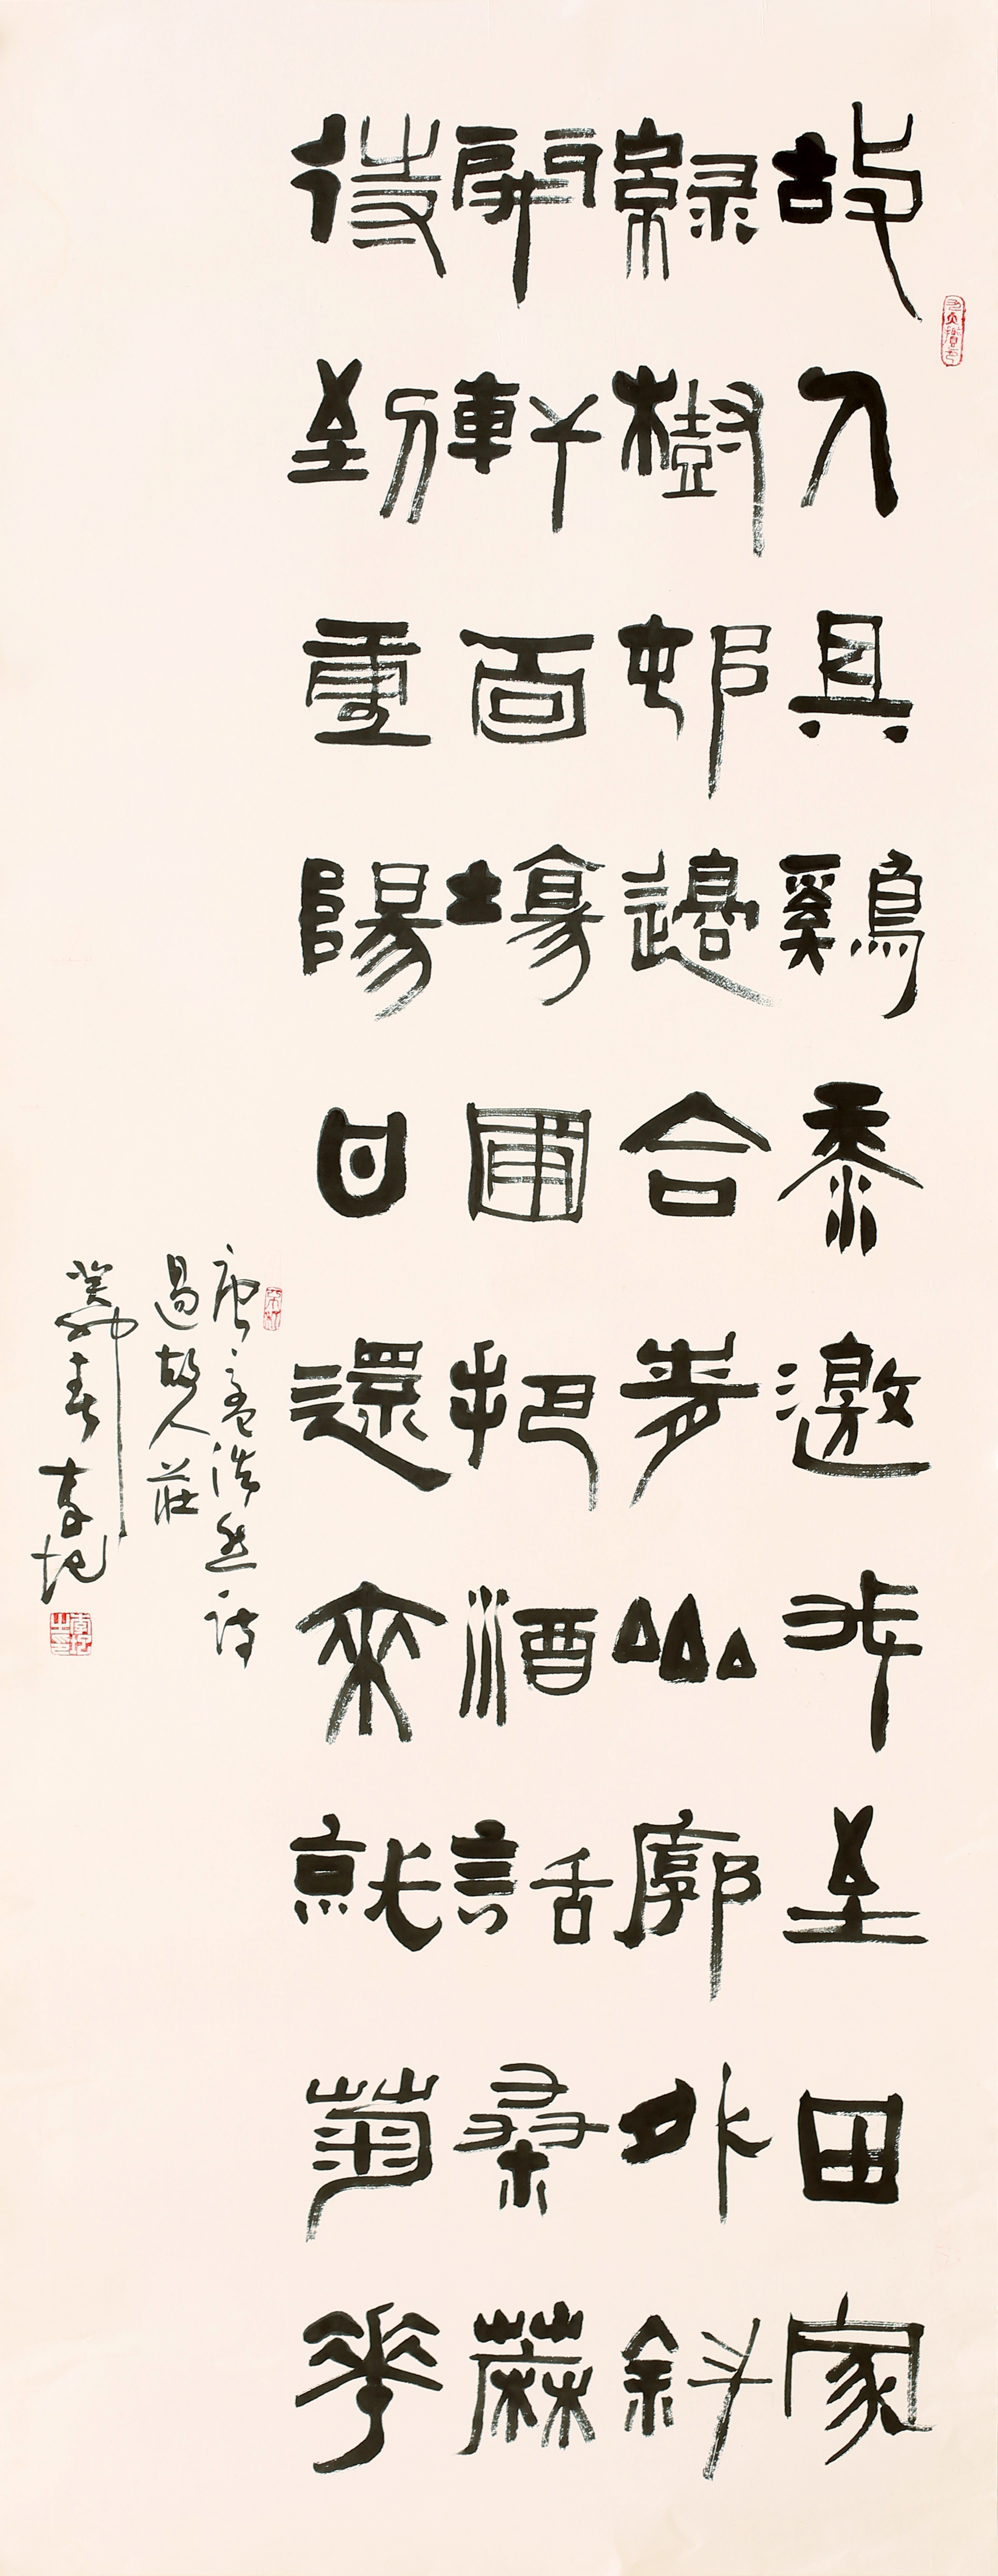 故人具鷄黍邀我至田家
綠樹邨邊合青山廓外斜
開軒面場圃把酒話桑蔴
待到重陽日還來就菊花
唐孟浩然詩
過故人莊
癸卯春